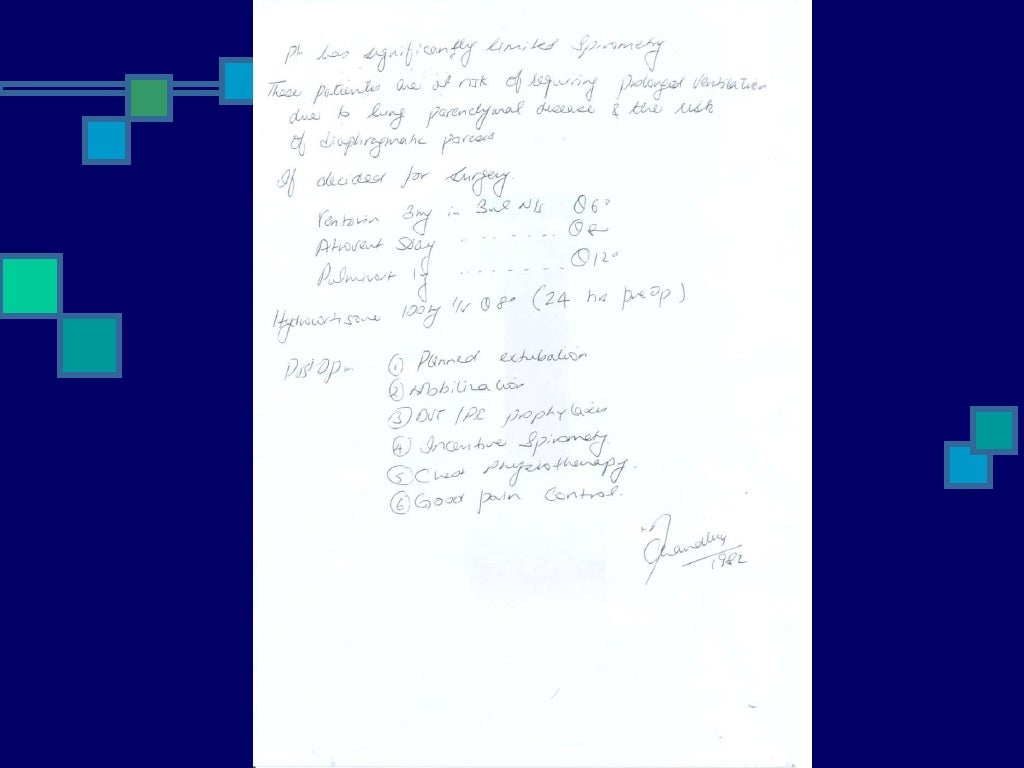 Pt has significantly limited Spirometry
These patients are at risk of requiring prolonged ventilation
due to lung parenchymal disease & the risk
of diaphragmatic paresis
If decided for surgery.
Ventolin 3mg in 3ml N/s Q6°
Atrovent 500mg .. - - - - - Q8
Pulmicort 1g - - - - - - - Q12°
Hydrocortisone 100mg Q8° (24 hrs preop)
Post Op:- ① Planned extubation
② Mobilization
③ DVT / PE prophylaxis
④ Incentive Spirometry.
⑤ Chest physiotherapy.
⑥ Good pain control.
1982